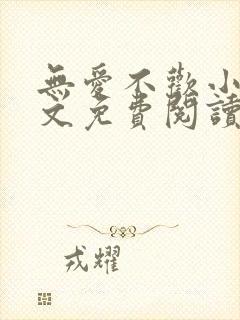 無愛不歡小
文免費閱讀
戎耀